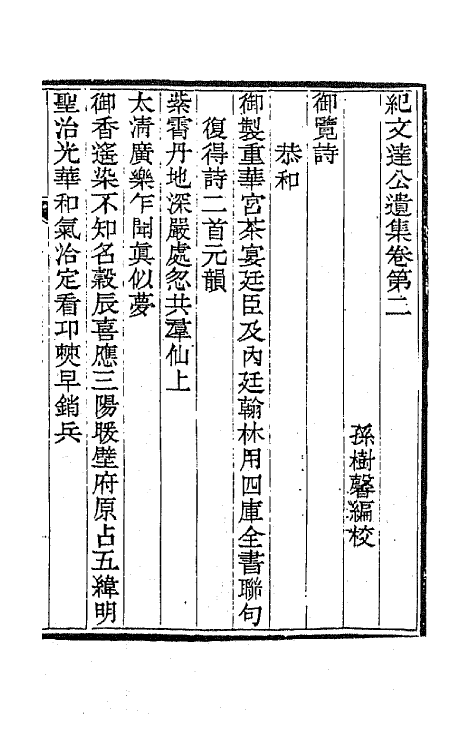 紀文達公遺集卷第二
孫樹馨編校
御覽詩
恭和
御製重華宮茶宴廷臣及內廷翰林用四庫全書聯句
復得詩二首元韻
紫霄丹地深嚴處忽共羣仙上
太淸廣樂乍聞眞似夢
御香遙染不知名穀辰喜應三陽暖壁府原占五緯明
聖治光華和氣洽定看卭僰早銷兵